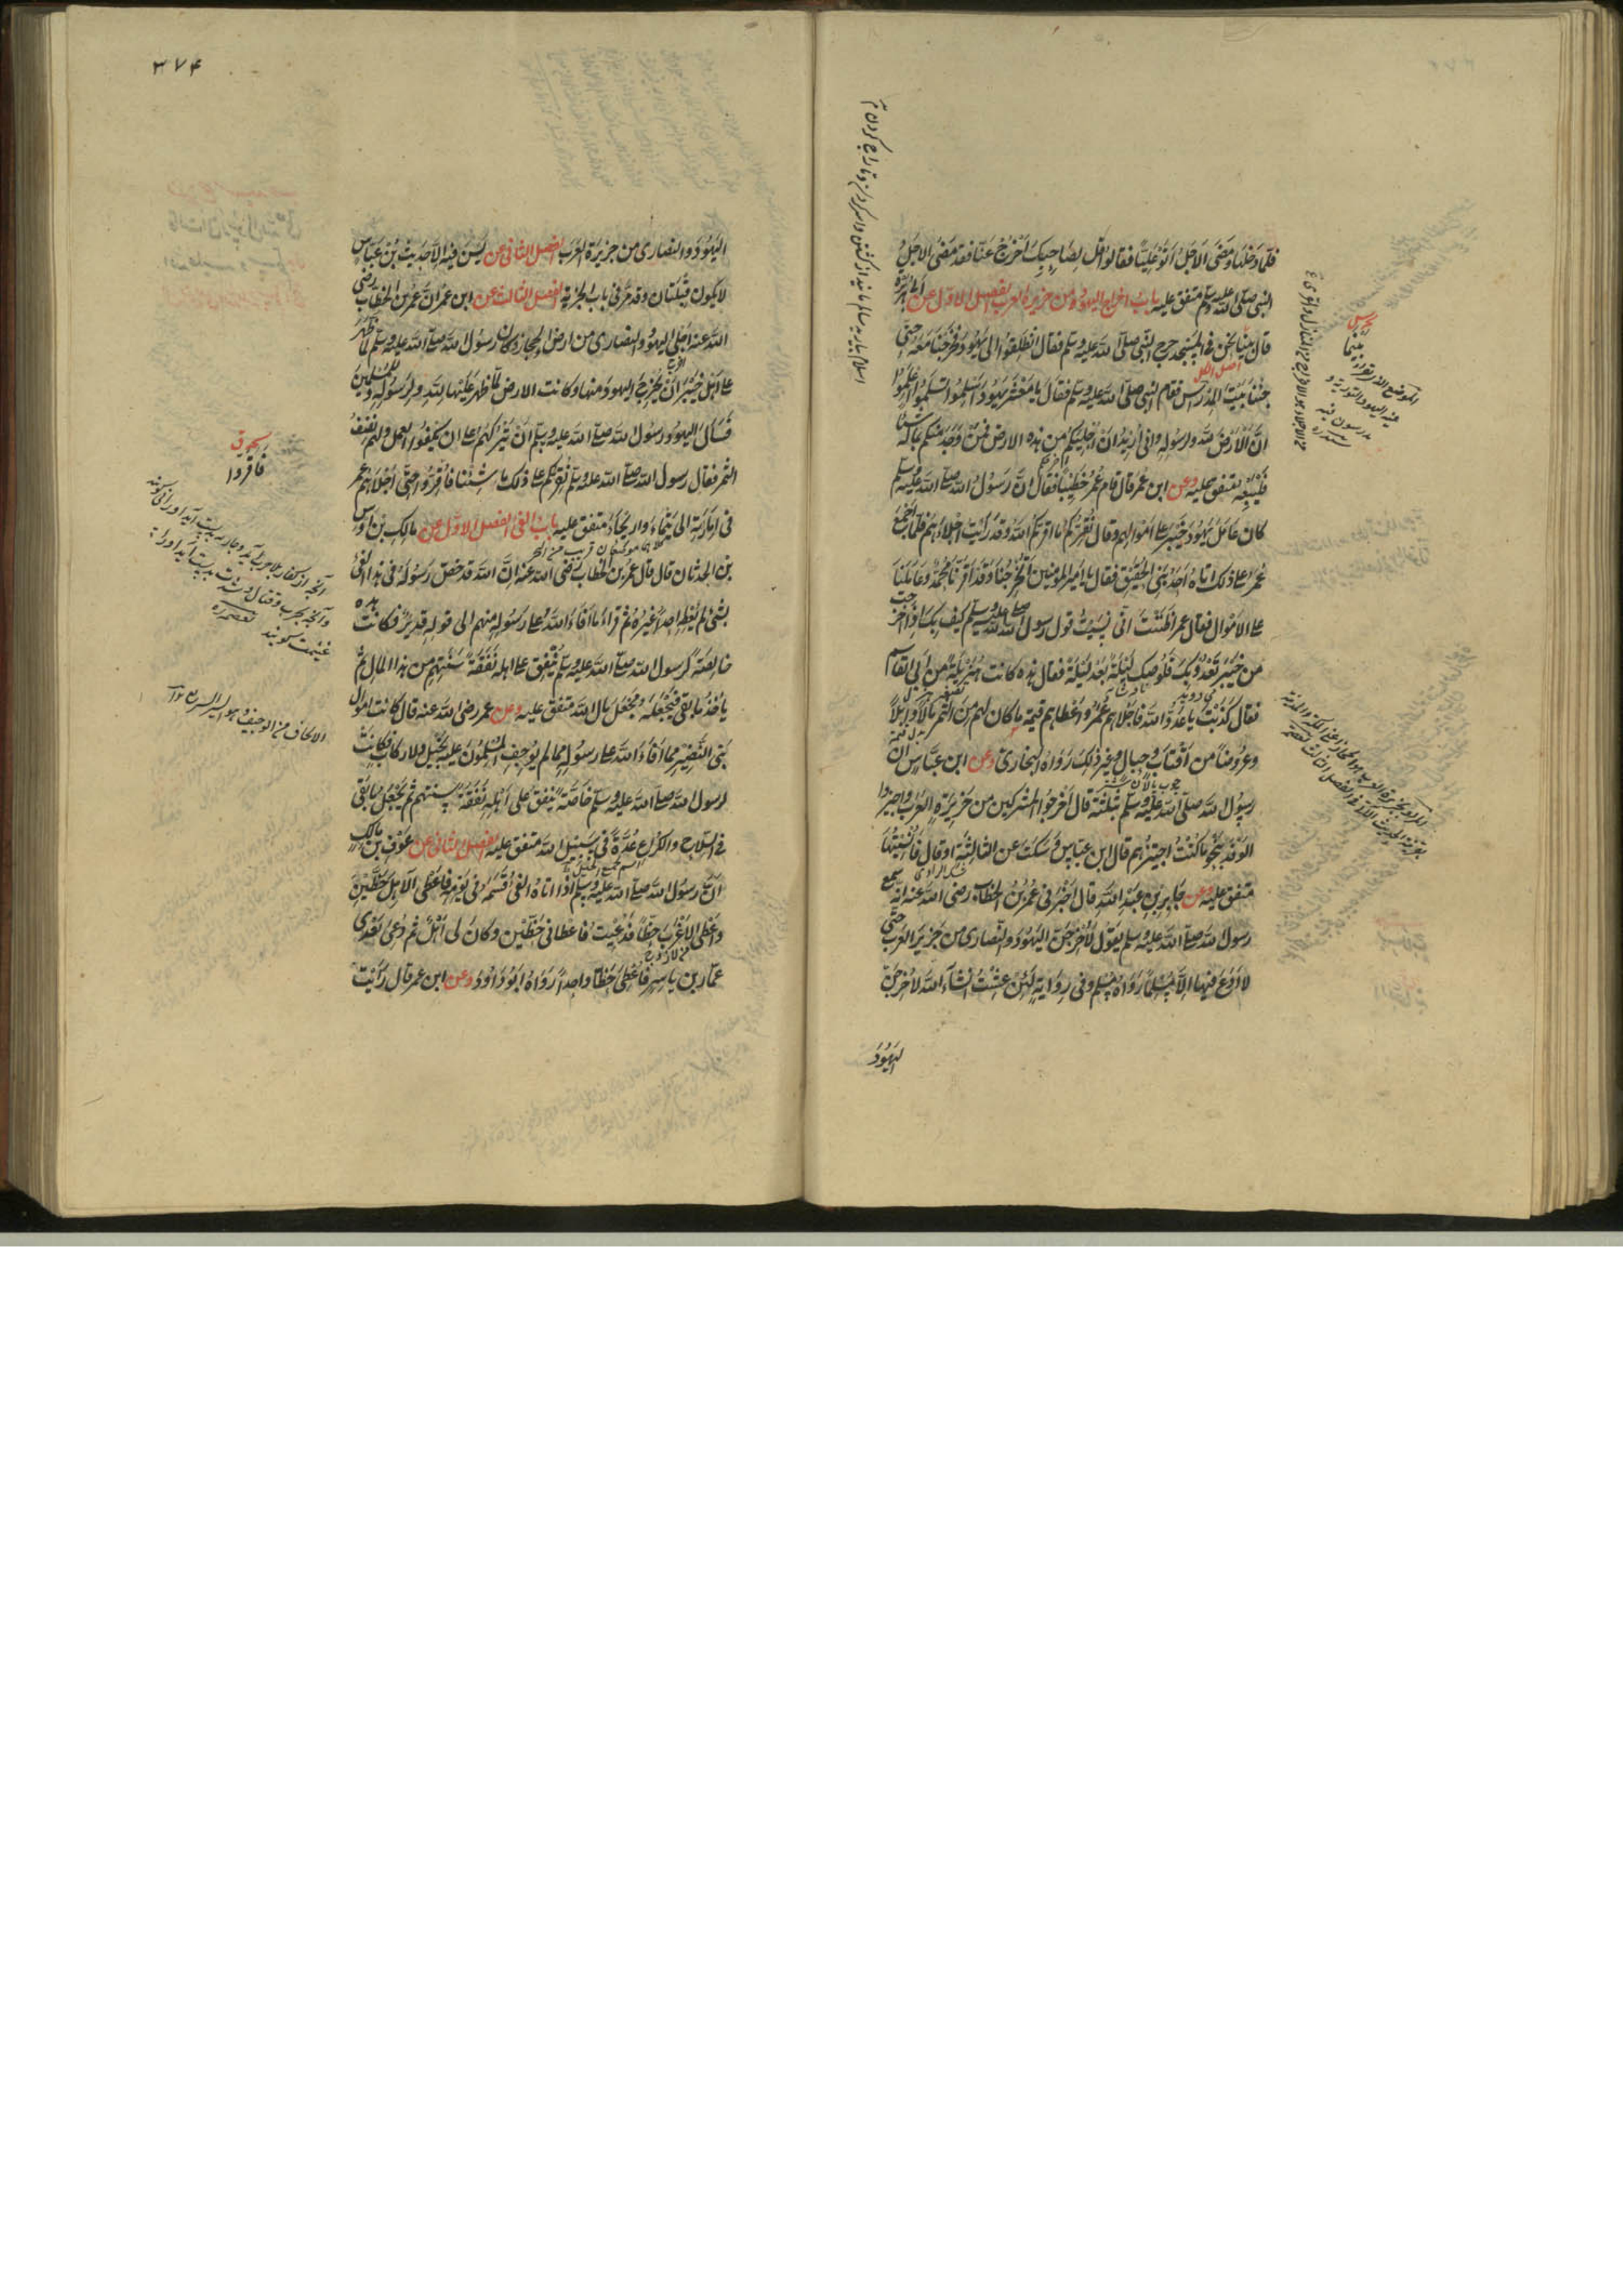 فلما دخلها ومضى الاجل اتو عليا فقالوا قل لصاحبك اخرج عنا فقد مضى الاجل
النبى صلى الله عليه وسلم متفق عليه باب اخراج اليهود من جزيرة العرب الفصل الاول عن ابى هريرة
قال بينا نحن فى المسجد خرج النبى صلى الله عليه وسلم فقال انطلقوا الى يهود فخرجنا معه حتى
جئنا بيت المدراس فقام النبى صلى الله عليه وسلم فقال يا معشر يهود اسلموا تسلموا اعلموا
ان الارض لله ولرسوله وانى اريد ان اجليكم من هذه الارض فمن وجد منكم بماله شيئا
فليبعه متفق عليه وعن ابن عمر قال قام عمر خطيبا فقال ان رسول الله صلى الله عليه وسلم
كان عامل يهود خيبر على اموالهم وقال نقركم ما اقركم الله وقد رايت اجلاءهم فلما اجمع
عمر على ذلك اتاه احد بنى الحقيق فقال يا امير المومنين اتخرجنا وقد اقرنا محمد وعاملنا
على الاموال فقال عمر اظننت انى نسيت قول رسول الله صلى الله عليه وسلم كيف بك اذا اخرجت
من خيبر تعدو بك قلوصك ليلة بعد ليلة فقال هذه كانت هزيلة من ابى القاسم
فقال كذبت يا عدو الله فاجلاهم عمر واعطاهم قيمة ما كان لهم من الثمر مالا وابلا
وعروضا من اقتاب وحبال وغير ذلك رواه البخارى وعن ابن عباس ان
رسول الله صلى الله عليه وسلم بثلثة قال اخرجوا المشركين من جزيرة العرب واجيزوا
الوفد بنحو ما كنت اجيزهم قال ابن عباس وسكت عن الثالثة او قال فانسيتها
متفق عليه وعن جابر بن عبد الله قال اخبرنى عمر بن الخطاب رضى الله عنه انه سمع
رسول الله صلى الله عليه وسلم يقول لاخرجن اليهود والنصارى من جزيرة العرب حتى
لا ادع فيها الا مسلما رواه مسلم وفى رواية لئن عشت ان شاء الله لاخرجن
اليهود
٣٧٤
اليهود والنصارى من جزيرة العرب الفصل الثانى عن ليس فيه الا حديث بن عباس
لا يكون قبلتان وقد مر فى باب الجزية الفصل الثالث عن ابن عمر ان عمر بن الخطاب رضى
الله عنه اجلى اليهود والنصارى من ارض الحجاز وكان رسول الله صلى الله عليه وسلم لما ظهر
على اهل خيبر اراد ان يخرج اليهود منها وكانت الارض لما ظهر عليها لله ولرسوله وللمسلمين
فسال اليهود رسول الله صلى الله عليه وسلم ان يتركهم على ان يكفوا العمل ولهم نصف
الثمر فقال رسول الله صلى الله عليه وسلم نقركم على ذلك ما شئنا فاقروا حتى اجلاهم عمر
فى امارته الى تيماء واريحاء متفق عليه باب الفئ الفصل الاول عن مالك بن اوس
بن الحدثان قال قال عمر بن الخطاب رضى الله عنه ان الله قد خص رسوله فى هذا الفئ
بشئ لم يعطه احدا غيره ثم قرا ما افاء الله على رسوله منهم الى قوله قدير فكانت هذه
خالصة لرسول الله صلى الله عليه وسلم ينفق على اهله نفقة سنتهم من هذا المال ثم
ياخذ ما بقى فيجعله مجعل مال الله متفق عليه وعن عمر رضى الله عنه قال كانت اموال
بنى النضير مما افاء الله على رسوله مما لم يوجف المسلمون عليه بخيل ولا ركاب فكانت
لرسول الله صلى الله عليه وسلم خاصة ينفق على اهله نفقة سنتهم ثم يجعل ما بقى
فى السلاح والكراع عدة فى سبيل الله متفق عليه الفصل الثانى عن عوف بن مالك
ان رسول الله صلى الله عليه وسلم اذا اتاه الفئ قسمه فى يومه فاعطى الآهل حظين
واعطى الاعزب حظا فدعيت فاعطانى حظين وكان لى اهل ثم دعى بعدى
عمار بن ياسر فاعطى حظا واحدا رواه ابوداود وعن ابن عمر قال رايت
فاقروا